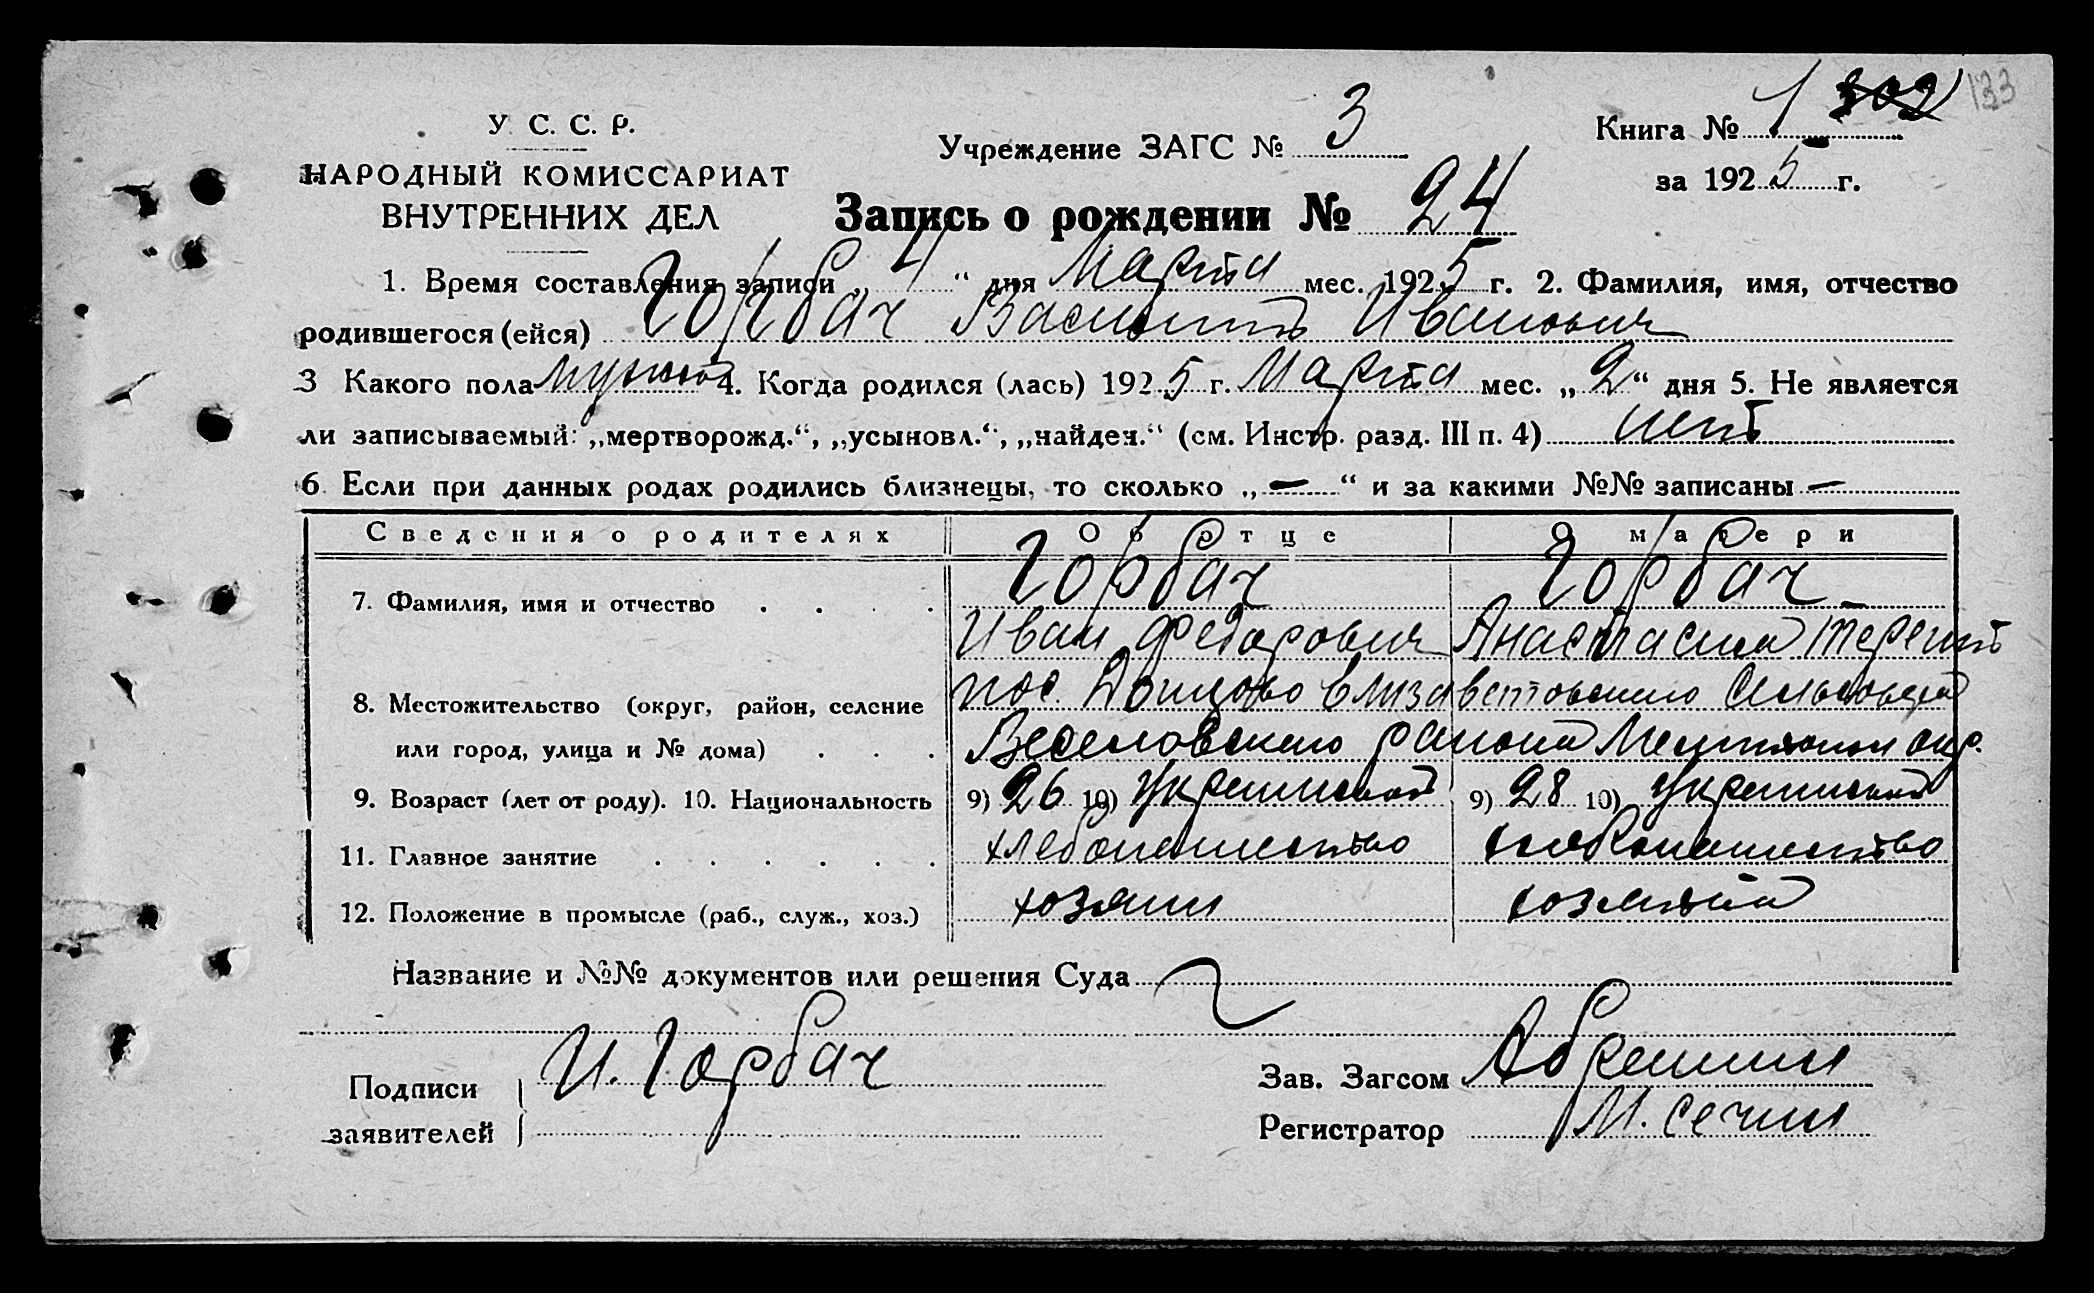 133
У. С. С. Р.
НАРОДНЫЙ КОМИССАРИАТ
ВНУТРЕННИХ ДЕЛ
Учреждение ЗАГС № 3
Книга № 1 302
за 1925 г.
Запись о рождении № 24
1. Время составления записи „ 4 “ дня Марта мес. 1925 г. 2. Фамилия, имя, отчество
родившегося (ейся) Горбач Иванович
3 Какого пола мужск 4. Когда родился (лась) 1925 г. Марта мес. „ 2 “ дня 5. Не является
ли записываемый: „мертворожд.“, „усыновл.“, „найден.“ (см. Инстр. разд. III п. 4) нет
6. Если при данных родах родились близнецы, то сколько „ — “ и за какими №№ записаны —
Сведения о родителях Об отце О матери
7. Фамилия, имя и отчество . . . . Горбач Горбач
Иван Федорович Анастасия Терент
8. Местожительство (округ, район, селение пос. Донцово Елизаветовского Сельсовета
или город, улица и № дома) . . . Веселовского района Мелитополь окр.
9. Возраст (лет от роду). 10. Национальность 9) 26 10) Украинской 9) 28 10) Украинской
11. Главное занятие . . . . . . хлебопашество хлебопашество
12. Положение в промысле (раб., служ., хоз.) хозяин хозяйка
Название и №№ документов или решения Суда
Подписи И. Горбач Зав. Загсом Абрашин
заявителей Регистратор М. Сечин